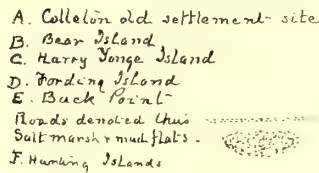 A. Colleton old settlement site
B. Bear Island
C. Harry Yonge Island
D. Fording Island
E. Buck Point
Roads denoted thus
Salt marsh & mud flats.
F. Hunting Islands